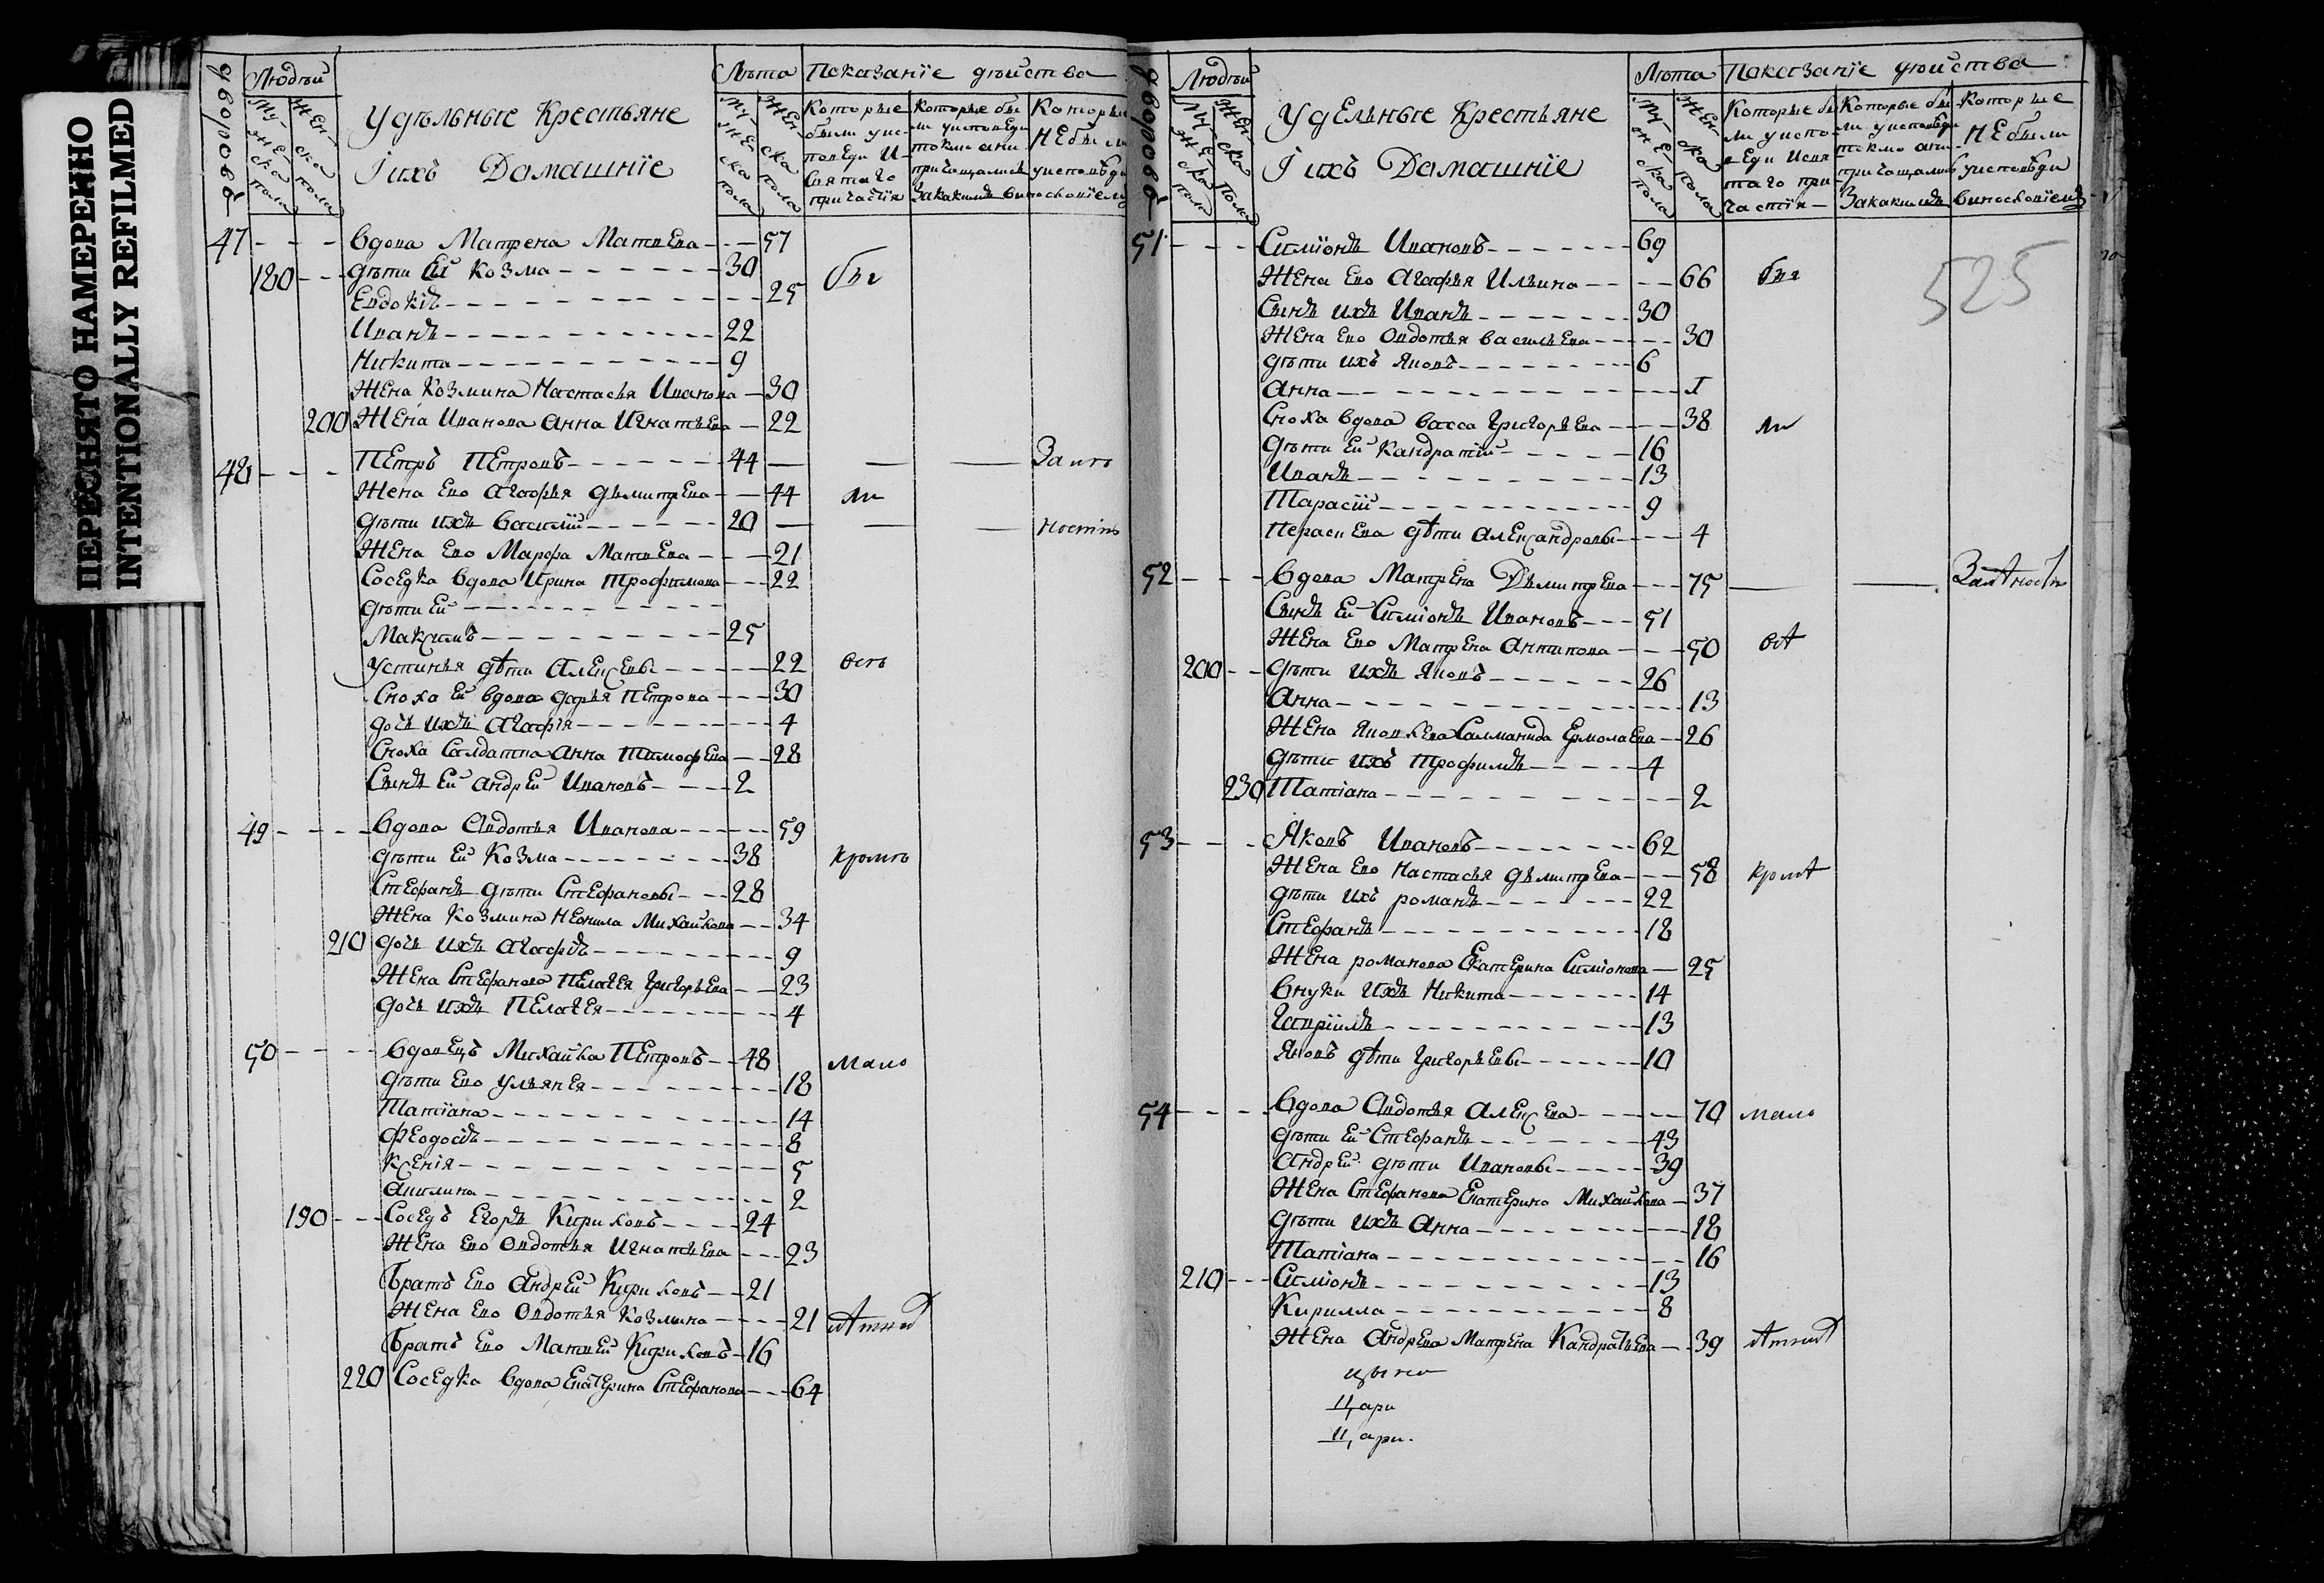 ПЕРЕСНЯТО НАМЕРЕННО
INTENTIONALLY REFILMED
дворовъ
Людѣй
Мужеска пола
Женска пола
Удѣльные Крестьяне
Iихъ Домашнїе
Лѣта
Мужеска пола
Женска пола
Показанїе дѣйства
Которые были уисповеди И святаго причастїя
Которые были уисповеди токмо
Которые НЕбыли уисповеди
47 - - - вдова Матрена МатвЕва - - 57
180 - - дѣти Ей Козма - - - 30 бы
Евдокїѣ - - - 25
Иванъ - - - 22
Никита - - - 9
ЖЕна Козмина Настасья Иванова - 30
200 ЖЕна Иванова Анна ИгнатьЕва - 22
48 - - - ПЕтръ ПЕтровъ - - - 44 — — — За нѣ
Жена Ево Агафья ДьмитрЕва - - 44 ли
дѣти ихъ василїй - - - 20 — — —
ЖЕна Ево Марфа МатвЕва - - - 21
Соседка вдова Ирина Трофимова - - - 22
дѣти Ей - - -
Максимъ - - - 25
Устинья дѣти АлЕксЕвы - - - 22 всѣ
Сноха Ей вдова дарья ПЕтрова - - - 30
дочь ихъ Агафья - - - 4
Сноха Салдатка Анна ТимофЕва - - 28
Сынъ Ей АндрЕй Ивановъ - - - 2
49 - - - вдова Авдотья Иванова - - - 59
дѣти Ей Козма - - - 38 кромѣ
СтЕфанъ дѣти СтЕфановы - - 28
ЖЕна Козмина НЕонила Михайлова - - 34
210 дочь ихъ Агафїѣ - - - 9
ЖЕна СтЕфанова ПЕлагЕя ГригорьЕва - - 23
дочь ихъ ПЕлагЕя - - - 4
50 - - - вдовЕцъ Михайла ПЕтровъ - - 48 мало
дѣти Ево УльянЕя - - - 18
Татїана - - - 14
ФЕодосїѣ - - - 8
КсЕнїя - - - 5
Акилина - - - 2
190 - - - СосЕдъ Егоръ Кириловъ - - - 24
ЖЕна Ево Овдотья ИгнатьЕва - - - 23
Братъ Ево АндрЕй Кириловъ - - 21
ЖЕна Ево Овдотья Козмина - - - 21 лѣтнѣ
Братъ Ево МатвЕй Кириловъ - 16
220 СосЕдка вдова ЕкатЕрина СтЕфанова - - - 64
дворовъ
Людѣй
Мужеска пола
Женска пола
УдЕльные КрестьянЕ
I ихъ Домашнїе
Лѣта
Мужеска пола
Женска пола
Показанїе дѣйства
Которые были уисповеди Исвятаго причастїя
Которые были уисповѣди токмо
Которые НЕбыли уисповѣди
525
51 - - - Симїонъ Ивановъ - - - 69
ЖЕна Ево Агафья Ильина - - - 66 бы
Сынъ ихъ Иванъ - - - 30
ЖЕна Ево Овдотья васильЕва - - - 30
дѣти ихъ Яковъ - - - 6
Анна - - - I
Сноха вдова васса ГригорьЕва - - - 38 ли
дѣти Ей Кандратїй - - - 16
Иванъ - - - 13
Тарасїй - - - 9
дѣти АлЕксандровы - - - 4
52 - - - вдова МатрЕна ДьмитрЕва - - - 75 — —
Сынъ Ей Симїонъ Ивановъ - - - 51
ЖЕна Ево МатрЕна Антипова - - - 50 всѣ
200 - - дѣти ихъ Яковъ - - - 26
Анна - - - 13
ЖЕна ЯковлЕва Саломанида ЕрмолаЕва - - 26
дѣти ихъ Трофимъ - - - 4
230 Татїана - - - 2
53 - - - Яковъ Ивановъ - - - 62
ЖЕна Ево Настасья ДьмитрЕва - - - 58 кромѣ
дѣти ихъ романъ - - - 22
СтЕфанъ - - - 18
ЖЕна романова ЕкатЕрина Симїонова - 25
внуки ихъ Никита - - - 14
Гаврїилъ - - - 13
Яковъ дѣти ГригорьЕвы - - - 10
54 - - - вдова Авдотья АлЕксЕва - - - 70 мало
дѣти Ей СтЕфанъ - - - 43
АндрЕй дѣти Ивановы - - - 39
ЖЕна СтЕфанова ЕкатЕрина Михайлова - 37
дѣти ихъ Анна - - - 18
Татїана - - - 16
210 - - - Симїонъ - - - 13
Кирилла - - - 8
ЖЕна АндрЕва МатрЕна КандратьЕва - - 39 лѣтнѣ